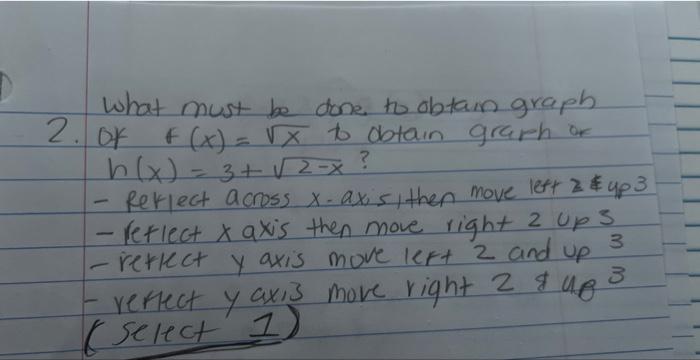 What must be done to obtain graph
2. of f(x) = √x to obtain graph of
h(x) = 3+ √2-x ?
- Reflect across x-axis, then move left 2 & up 3
- reflect x axis then move right 2 up 3
- reflect y axis move left 2 and up 3
- reflect y axis move right 2 & up 3
(select 1)